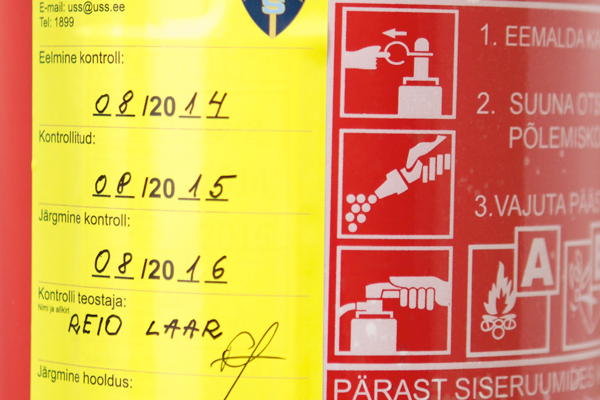 E-mail: uss@uss.ee
Tel: 1899
Eelmine kontroll:
08/2014
Kontrollitud:
08/2015
Järgmine kontroll:
08/2016
Kontrolli teostaja:
Nimi ja allkiri
REIO LAAR
Järgmine hooldus:
1. EEMALDA
2. SUUNA
3. VAJUTA
A
PÄRAST SISERUUMIDES